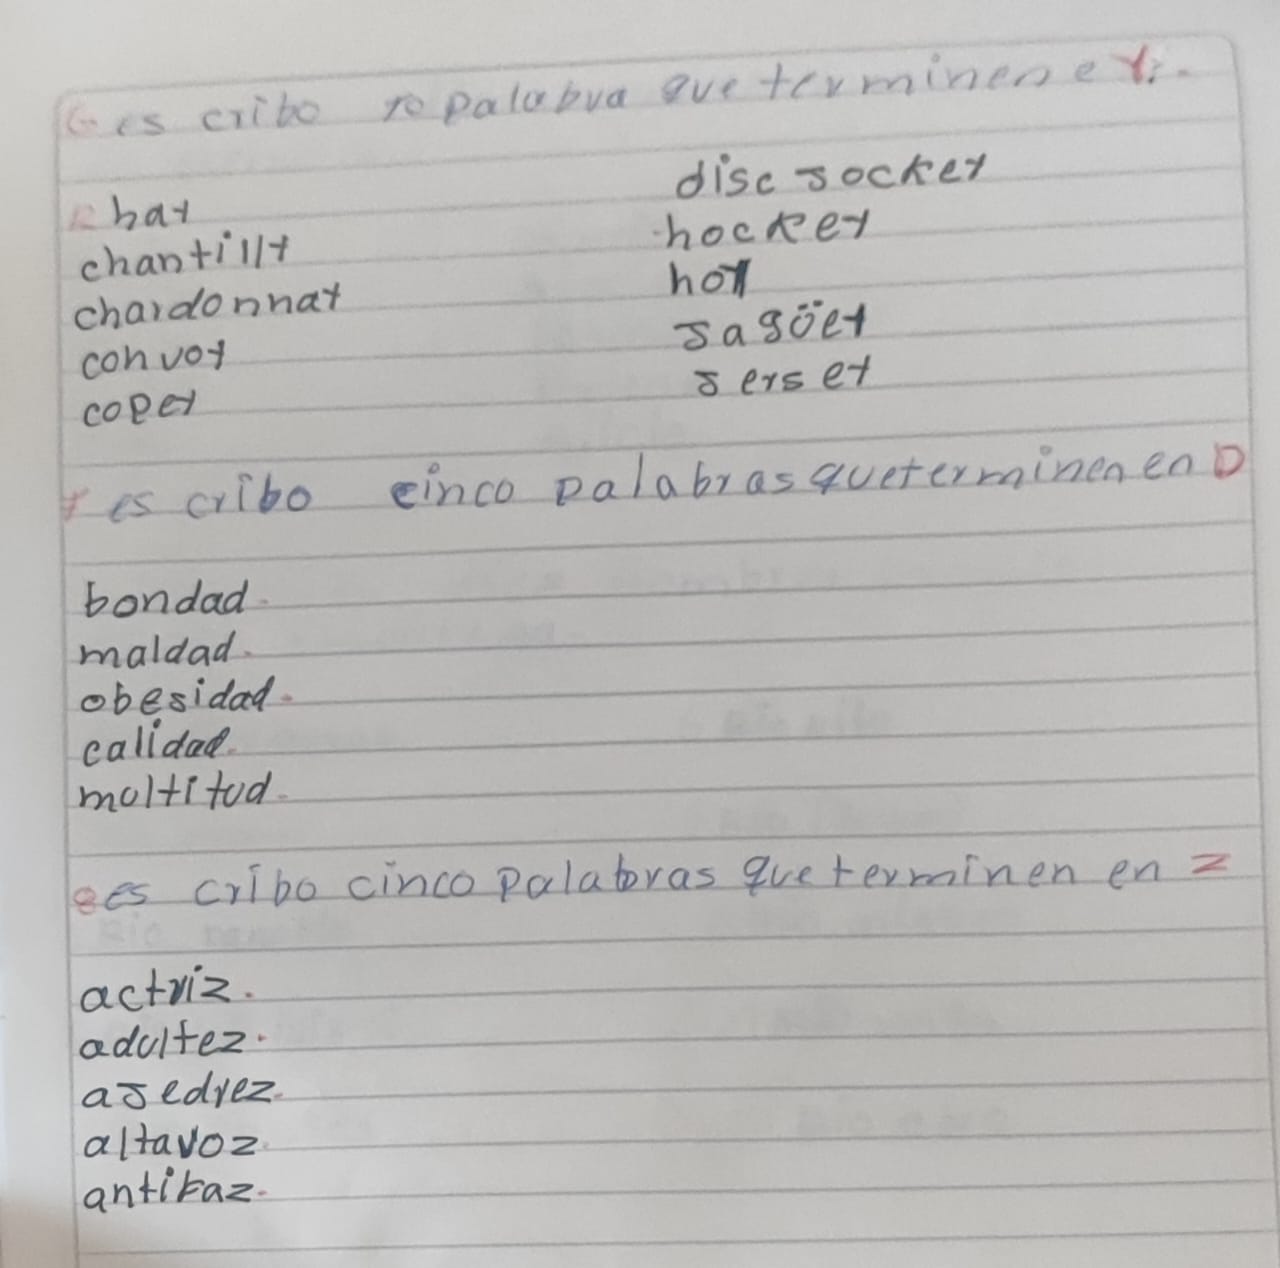 6 es cribo 10 palabra que terminen e Y.
hay
chantilly
chardonnay
convoy
copey
disc jockey
hockey
hoy
jagüey
jersey
7 es cribo cinco palabras que terminen en D
bondad.
maldad.
obesidad.
calidad.
moltitud.
8 es cribo cinco palabras que terminen en Z
actriz.
adultez.
ajedrez.
altavoz.
antifaz.